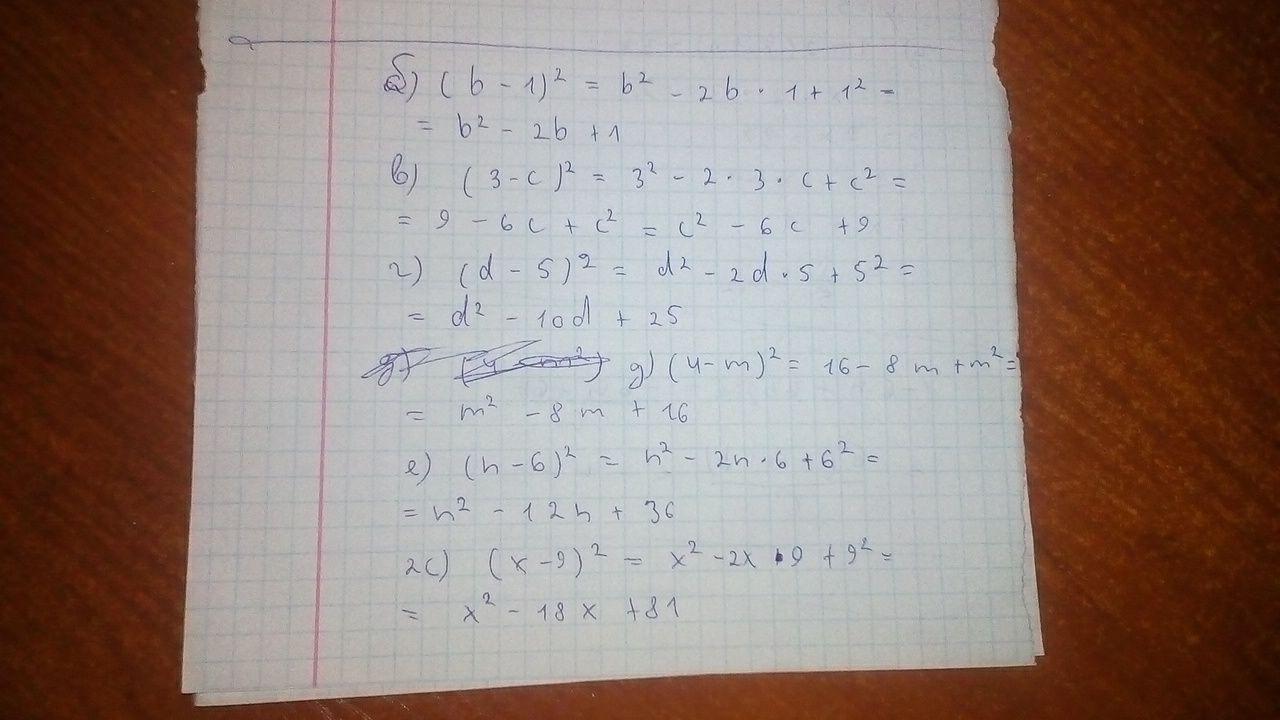 б) (b - 1)² = b² - 2b · 1 + 1² =
= b² - 2b + 1
в) (3 - c)² = 3² - 2 · 3 · c + c² =
= 9 - 6c + c² = c² - 6c + 9
г) (d - 5)² = d² - 2d · 5 + 5² =
= d² - 10d + 25
д) (4 - m)² = 16 - 8m + m² =
= m² - 8m + 16
е) (n - 6)² = n² - 2n · 6 + 6² =
= n² - 12n + 36
ж) (x - 9)² = x² - 2x · 9 + 9² =
= x² - 18x + 81